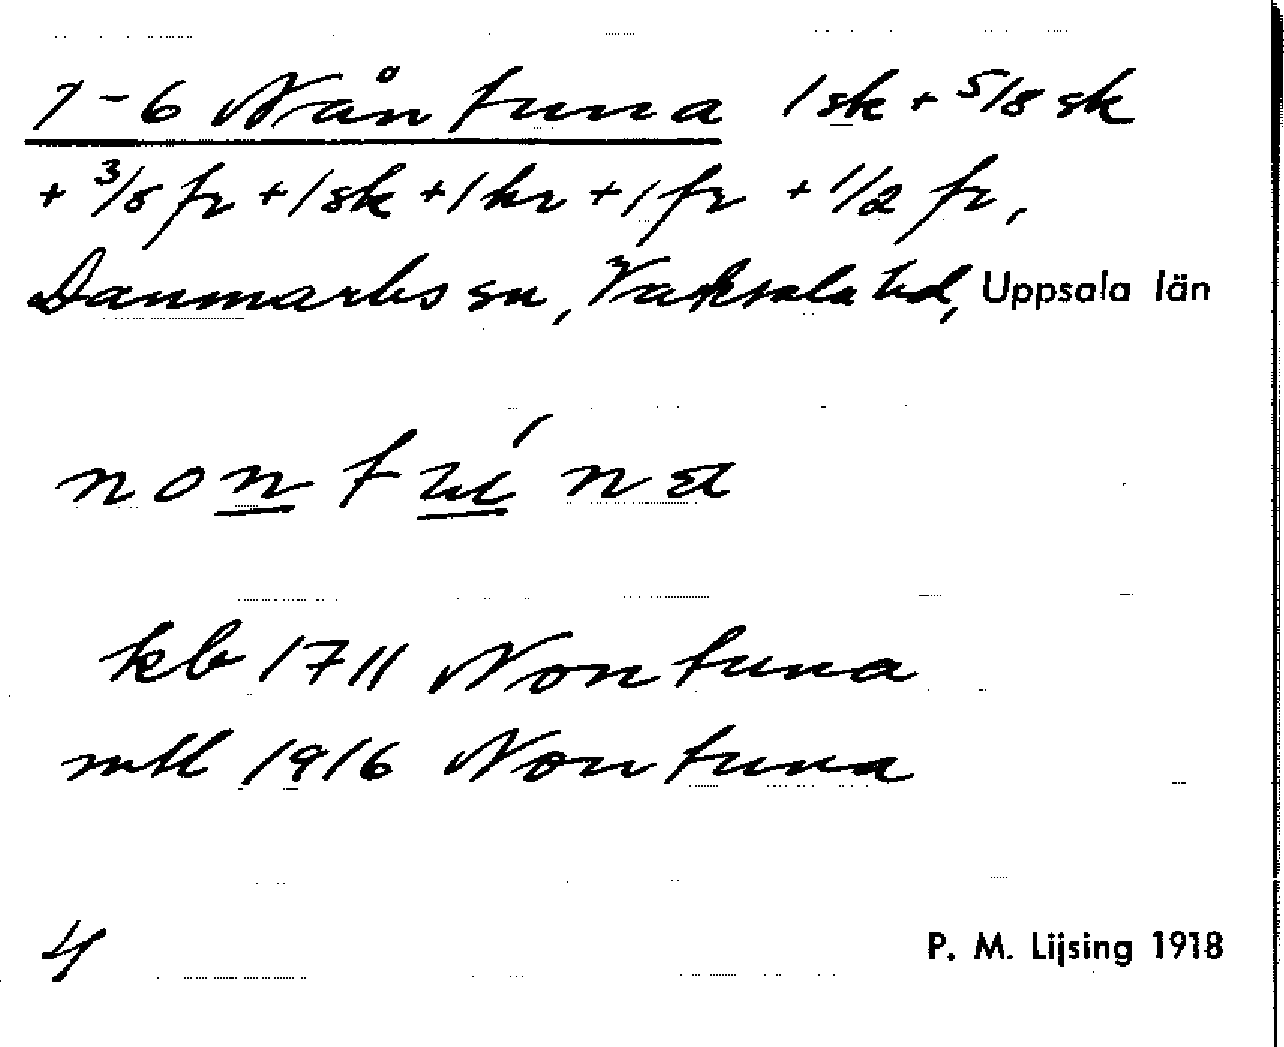 1-6 Nåntuna 1 sk + 5/8 sk
+ 3/8 fr + 1 sk + 1 kr + 1 fr + 1/2 fr,
Danmarks sn, Vaksala hd, Uppsala län
nontúna
kb 1711 Nontuna
mtl 1916 Nontuna
4
P. M. Lijsing 1918